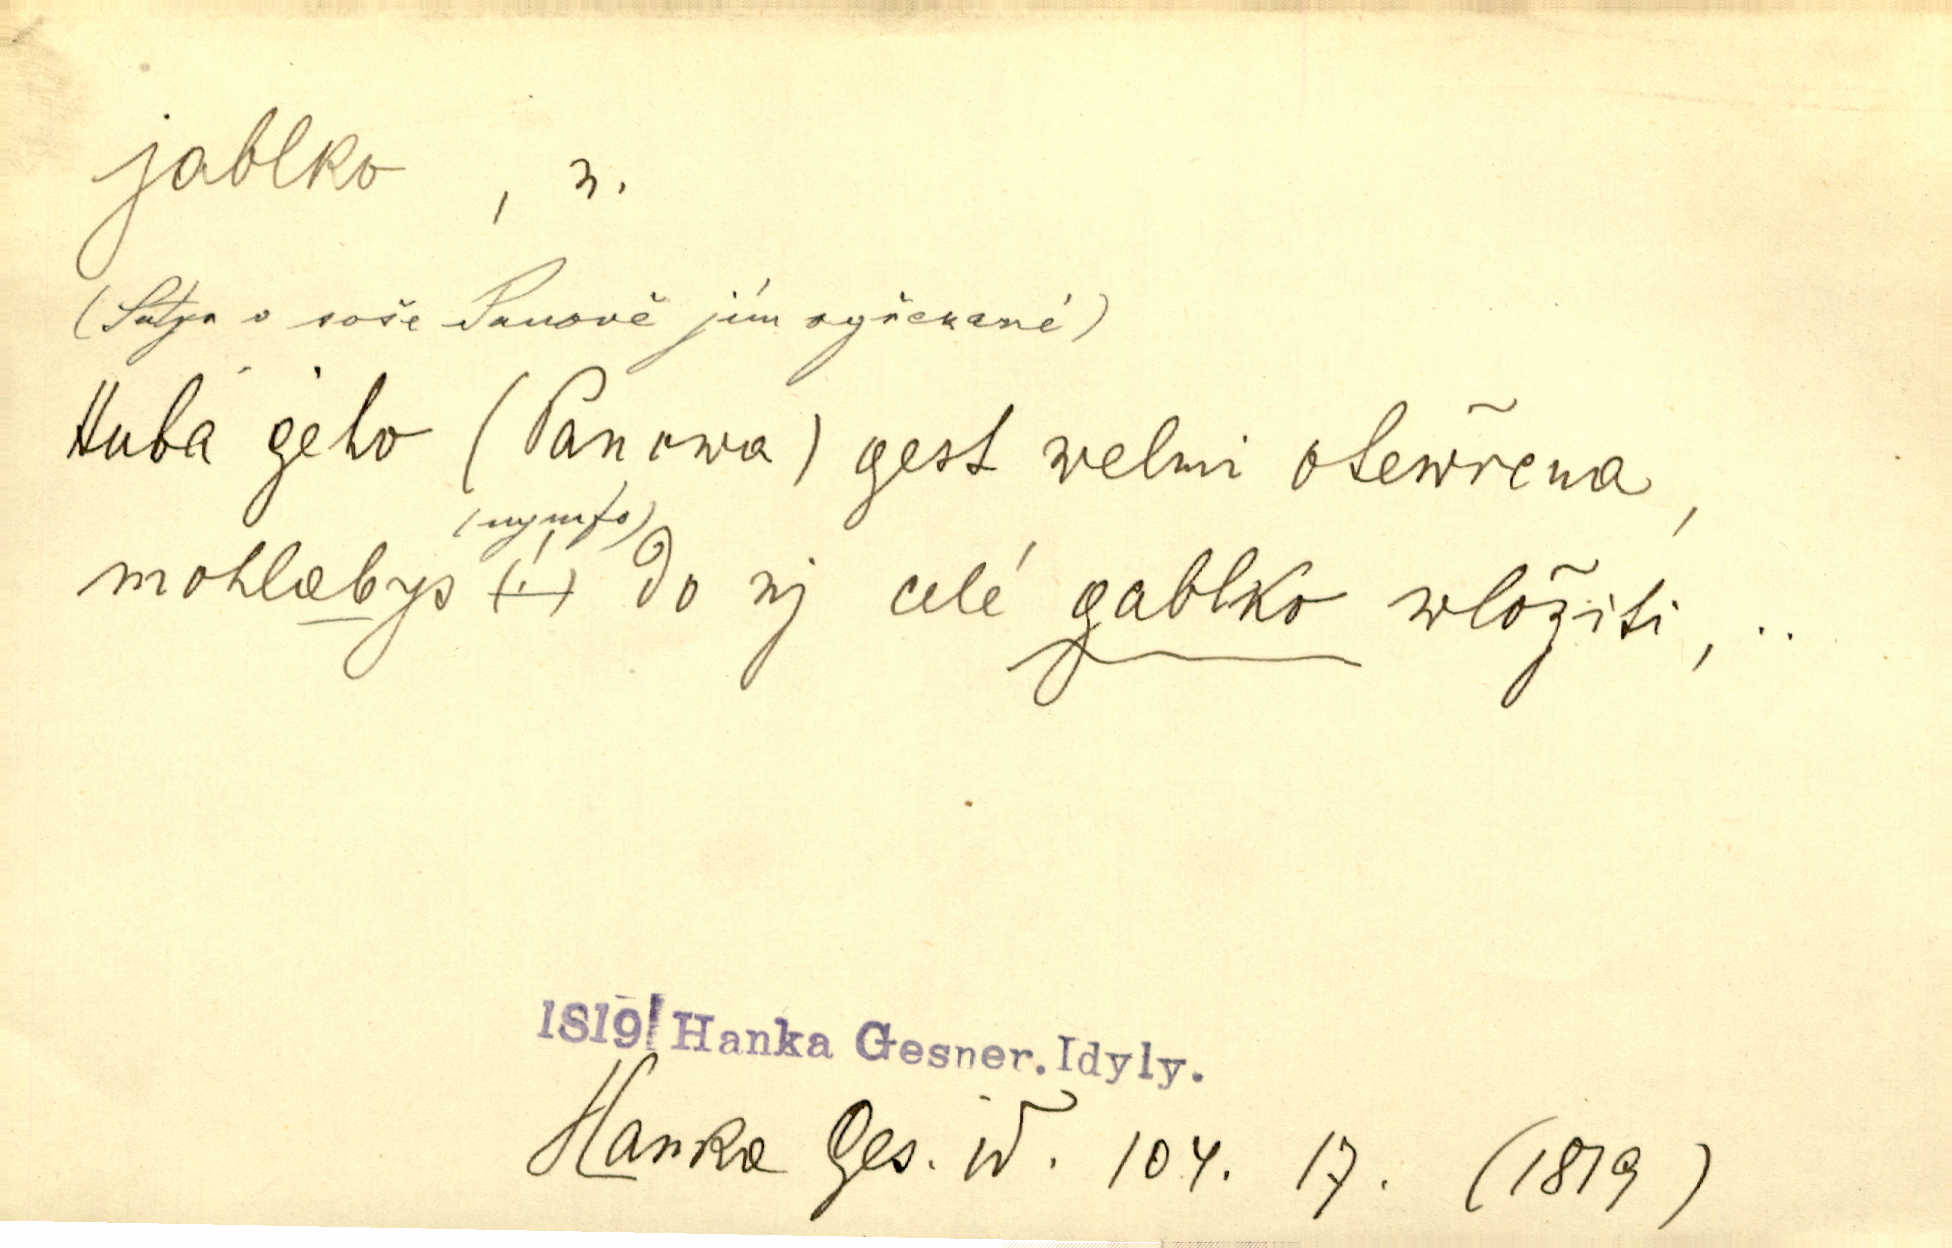 jablko , n.
(Satyr o soše Panově jím vyřezané)
Huba geho (Panowa) gest welmi otewřena,
(nymfo)
mohlabys (!) do nj celé gablko wložiti, ..
1819 Hanka Gesner. Idyly.
Hanka Ges. id. 104. 17. (1819)